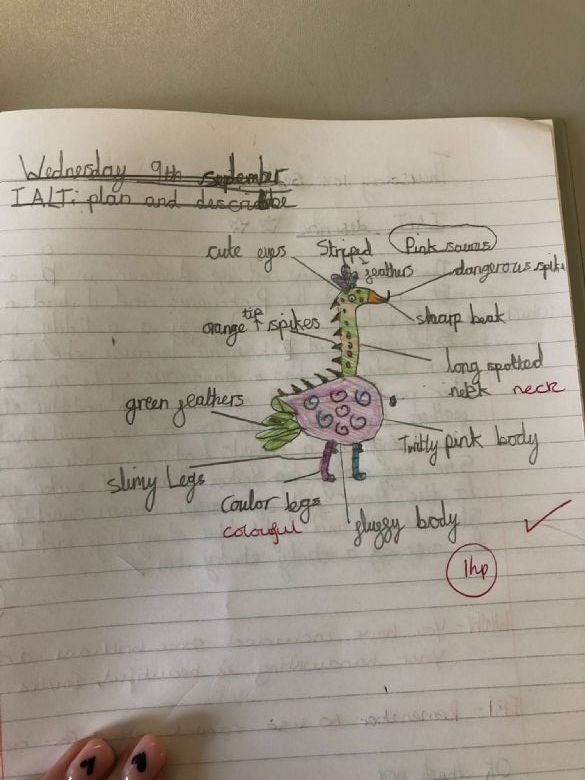 Wednesday 9th september
IALT: plan and describe
cute eyes
Striped
feathers
Pinksaurus
dangerous spike
orange tip spikes
sharp beak
long spotted
nekk neck
green feathers
Twilly pink body
slimy Legs
Coulor legs
colourful
fluggy body
1hp